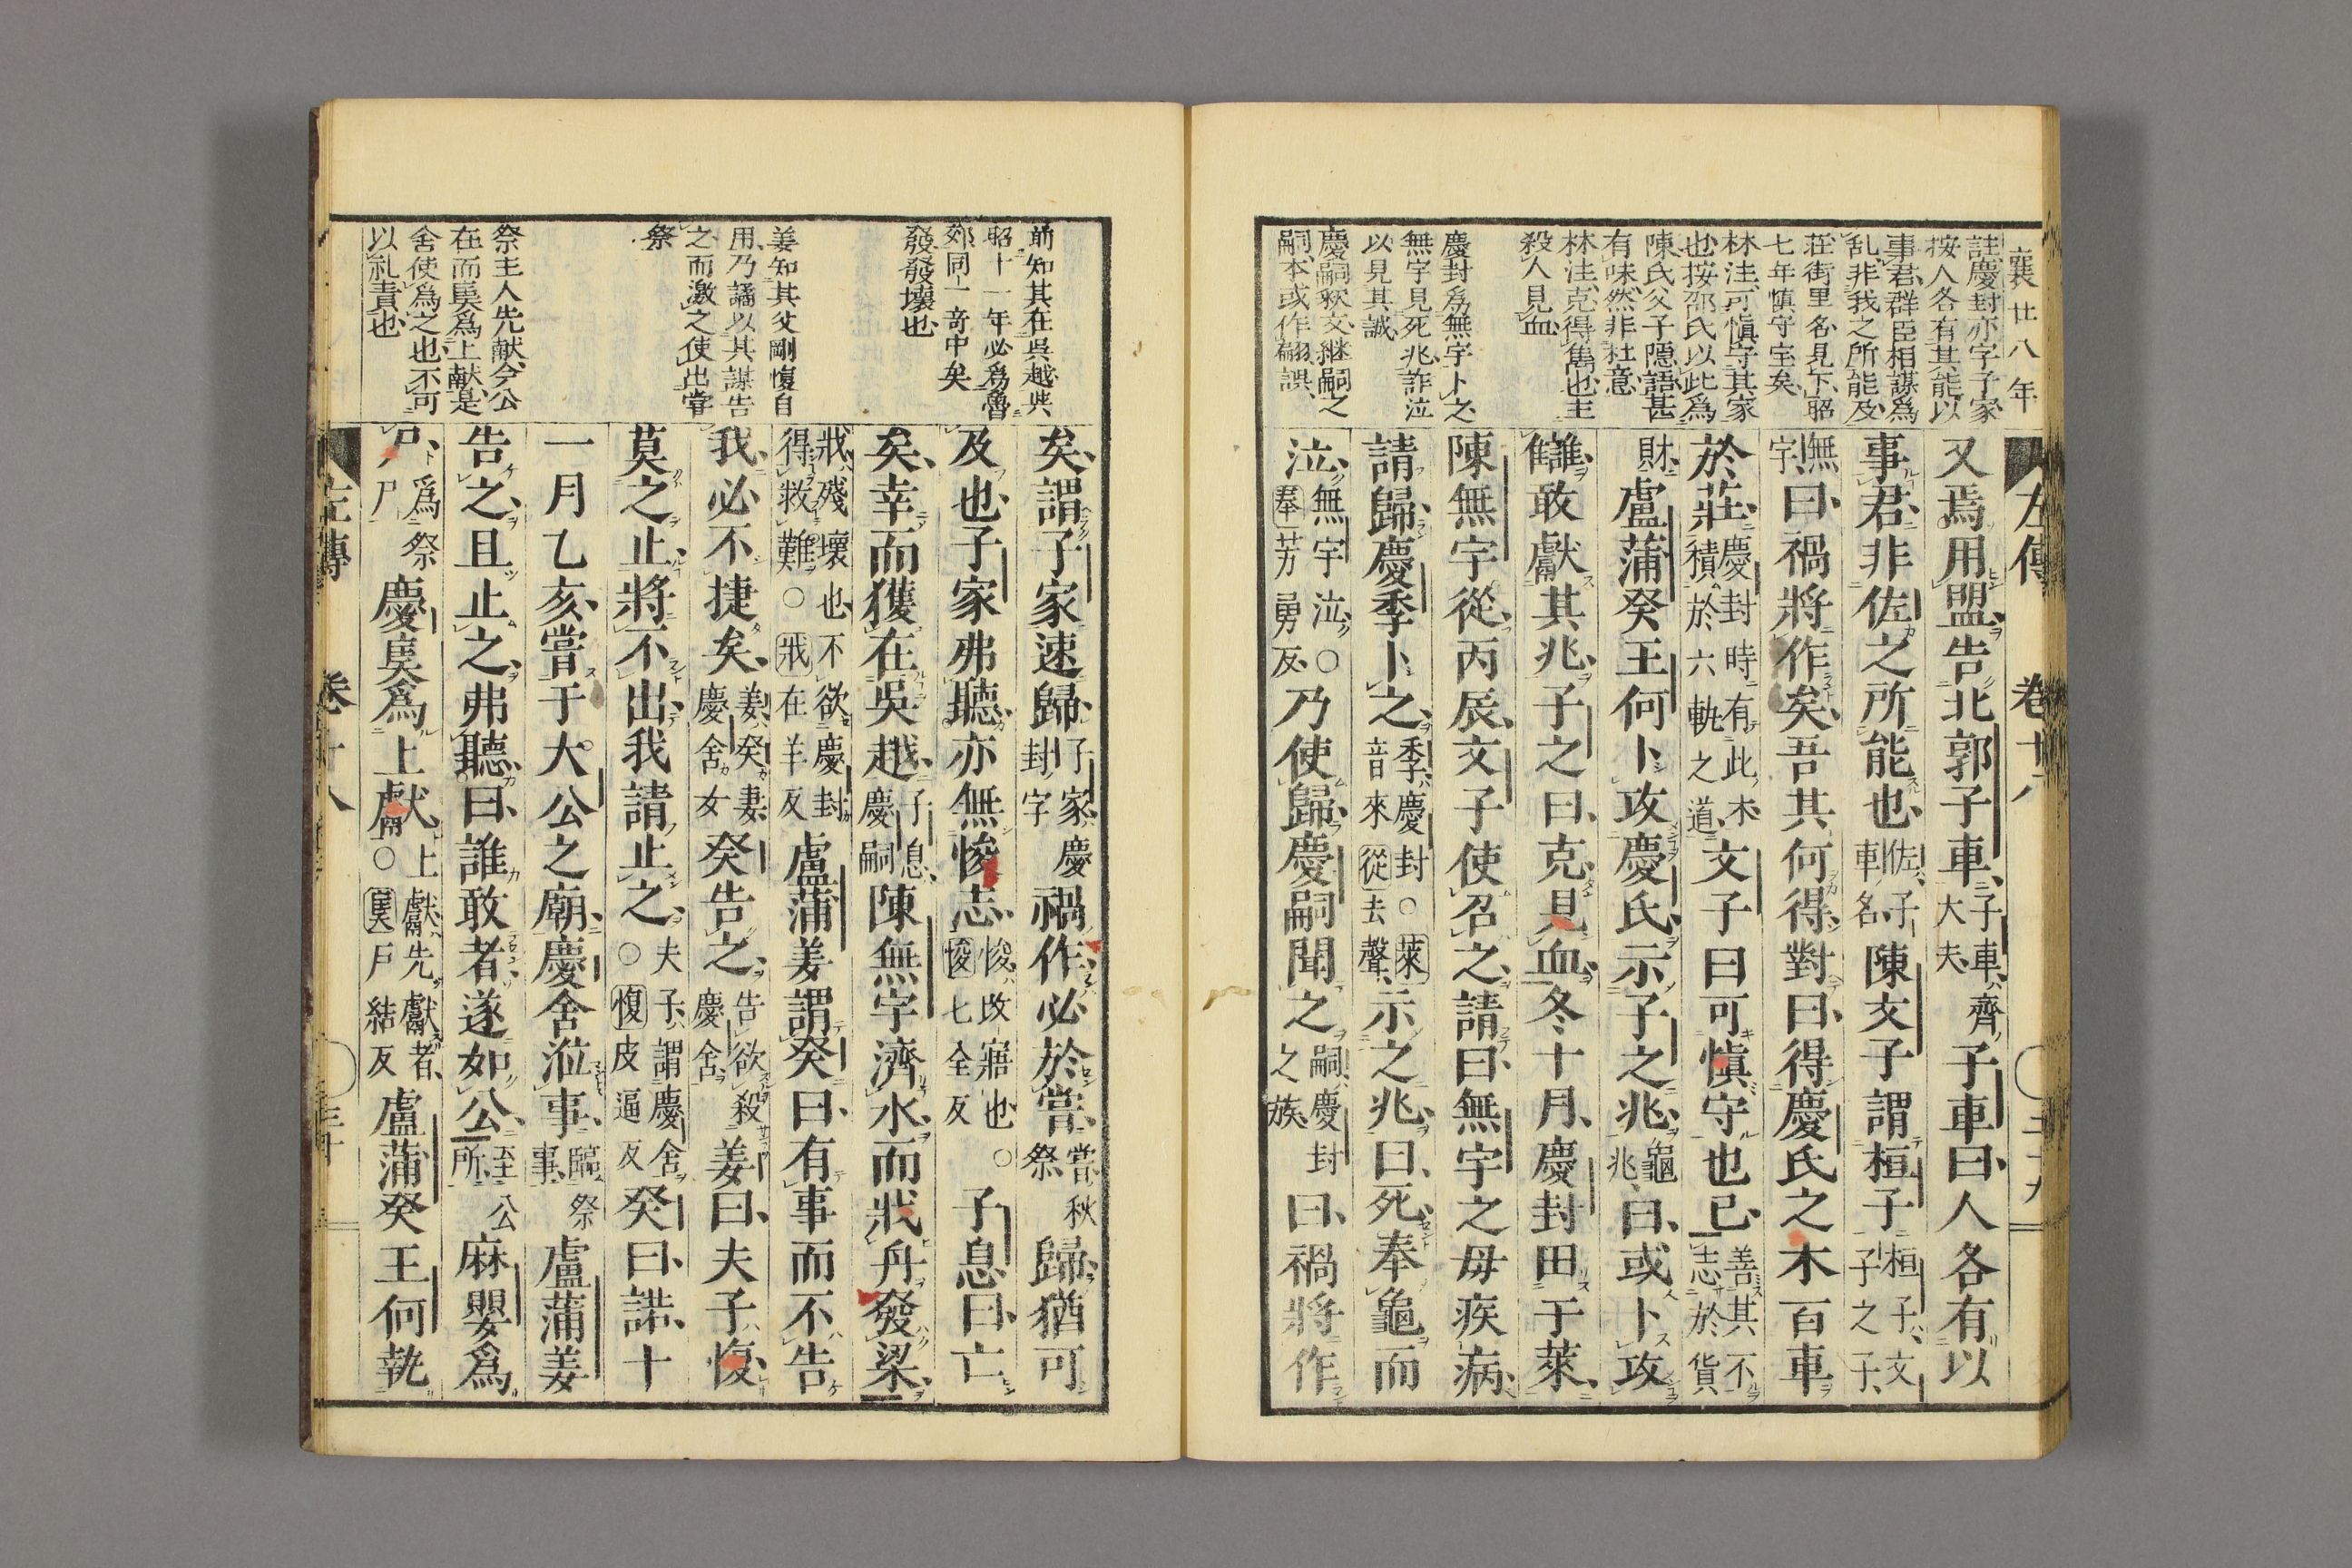 襄廿八年
註慶封亦字子家
按人各有其能以
事君群臣相謀爲
乱非我之所能及
莊街里名見下昭
七年慎守宝矣
林注可愼守其家
也按邵氏以此爲
陳氏父子隱語甚
有味然非杜意
林注克得雋也主
殺人見血
慶封爲無宇卜之
無宇見死兆詐泣
以見其誠
慶嗣釈文継嗣之
嗣本或作翮誤
左傳 卷十八
又焉用盟告北郭子車子車齊大夫子車曰人各有以
事君非佐之所能也佐子車名陳文子謂桓子桓子文子之子
無宇曰禍將作矣吾其何得對曰得慶氏之木百車
於莊慶封時有此木積於六軌之道文子曰可愼守也已善其不志於貨
財盧蒲癸王何卜攻慶氏示子之兆龜兆曰或卜攻
讎敢獻其兆子之曰克見血冬十月慶封田于萊
陳無宇從丙辰文子使召之請曰無宇之母疾病
請歸慶季卜之季慶封○萊音來從去聲示之兆曰死奉龜而
泣無宇泣○奉芳勇反乃使歸慶嗣聞之嗣慶封之族曰禍將作
前知其在吳越與
昭十一年必爲魯
郊同一奇中矣
發發壞也
姜知其父剛愎自
用乃譎以其謀告
之而激之使出嘗
祭
祭主人先献今公
在而䕫爲上献是
舍使爲之也不可
以礼責也
矣謂子家速歸子家慶封字禍作必於嘗嘗秋祭歸猶可
及也子家弗聽亦無悛志悛改寤也○悛七全反子息曰亡
矣幸而獲在吳越子息慶嗣陳無宇濟水而戕舟發梁
戕殘壞也不欲慶封得救難○戕在羊反盧蒲姜謂癸曰有事而不告
我必不捷矣姜癸妻慶舍女癸告之告欲殺慶舍姜曰夫子愎
莫之止將不出我請止之夫子謂慶舍○愎皮逼反癸曰諾十
一月乙亥嘗于大公之廟慶舍涖事臨祭事盧蒲姜
告之且止之弗聽曰誰敢者遂如公至公所麻嬰爲
尸爲祭尸慶䕫爲上獻上獻先獻者○䕫戶結反盧蒲癸王何執
左傳 卷十八